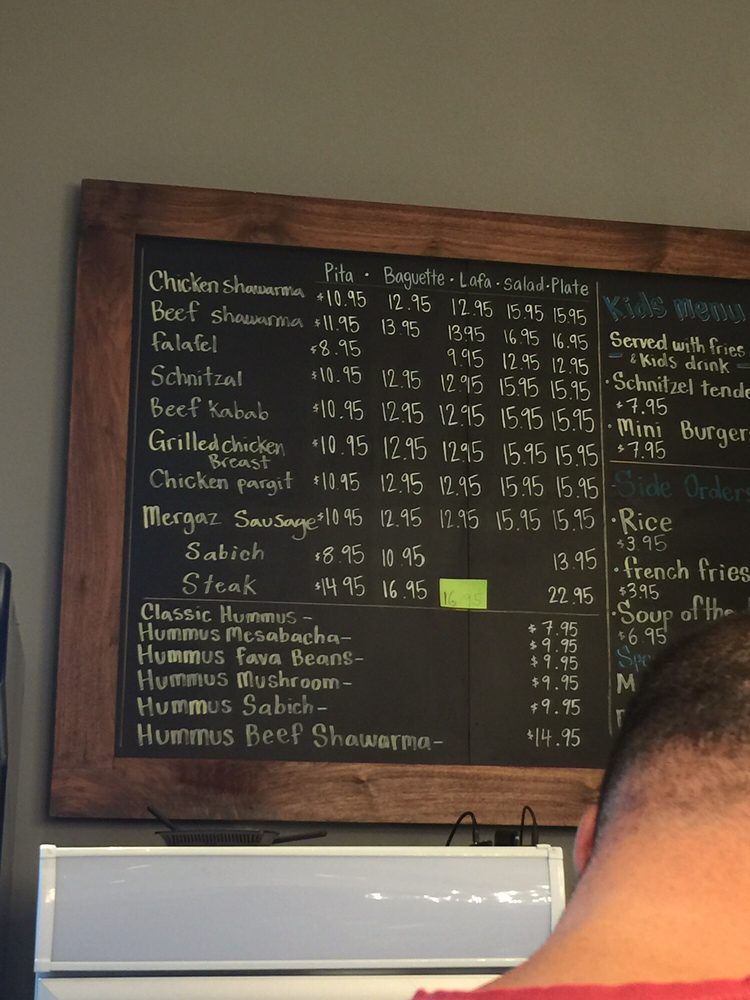 Pita · Baguette · Lafa · salad · Plate
Chicken shawarma $10.95 12.95 12.95 15.95 15.95
Beef shawarma $11.95 13.95 13.95 16.95 16.95
falafel $8.95 9.95 12.95 12.95
Schnitzal $10.95 12.95 12.95 15.95 15.95
Beef Kabab $10.95 12.95 12.95 15.95 15.95
Grilled chicken $10.95 12.95 12.95 15.95 15.95
Breast
Chicken pargit $10.95 12.95 12.95 15.95 15.95
Mergaz Sausage $10.95 12.95 12.95 15.95 15.95
Sabich $8.95 10.95 13.95
Steak $14.95 16.95 16.95 22.95
Classic Hummus - $7.95
Hummus Mesabacha - $9.95
Hummus Fava Beans - $9.95
Hummus Mushroom - $9.95
Hummus Sabich - $9.95
Hummus Beef Shawarma - $14.95
Kids menu
Served with fries
& Kids drink
· Schnitzel tende
$7.95
· Mini Burger
$7.95
Side Order
· Rice
$3.95
· french fries
$3.95
· Soup of the
$6.95